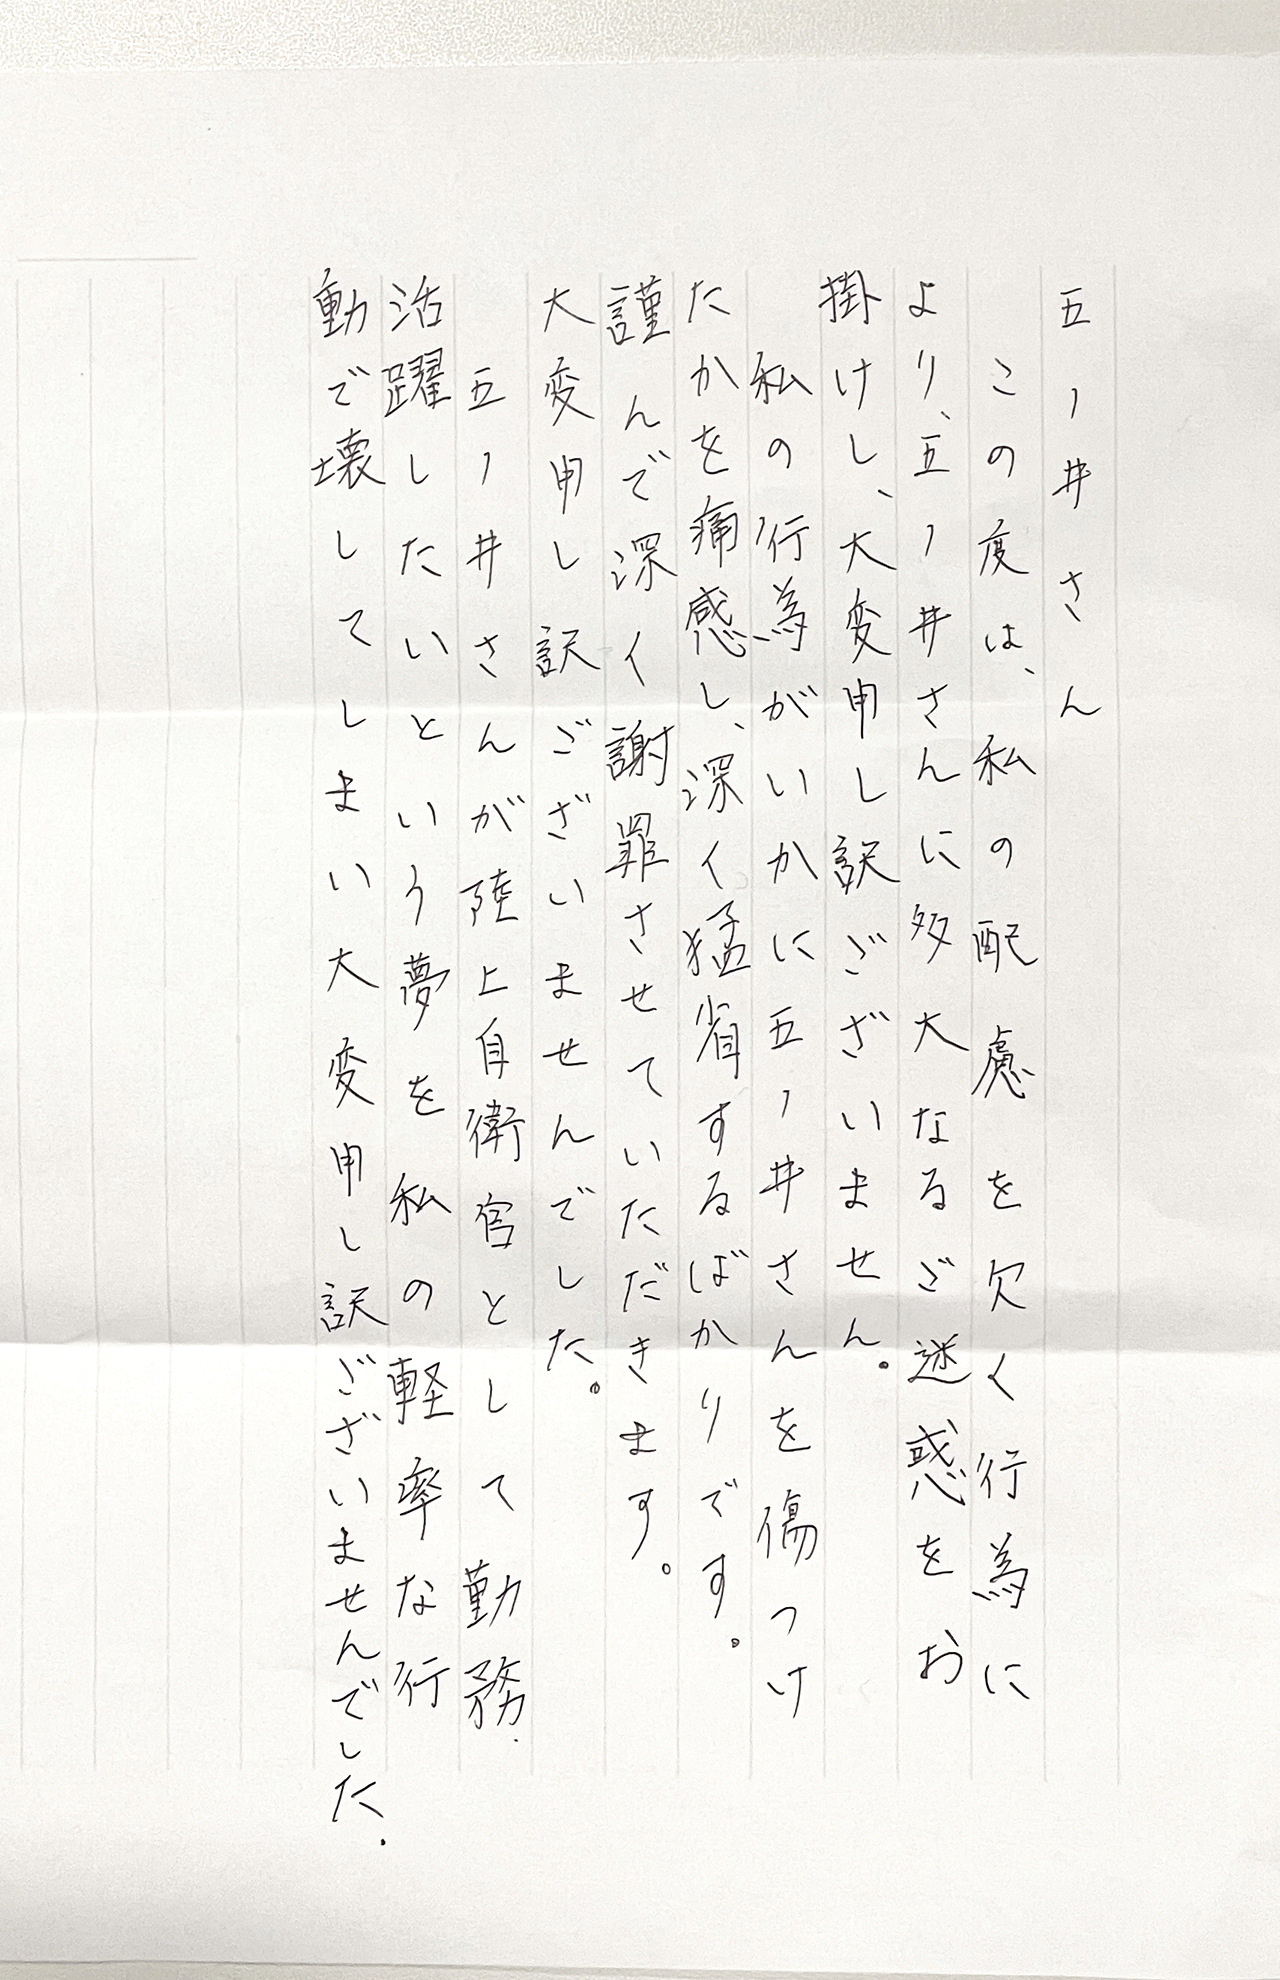 五ノ井さん
この度は、私の配慮を欠く行為に
より、五ノ井さんに多大なるご迷惑をお
掛けし、大変申し訳ございません。
私の行為がいかに五ノ井さんを傷つけ
たかを痛感し、深く猛省するばかりです。
謹んで深く謝罪させていただきます。
大変申し訳ございませんでした。
五ノ井さんが陸上自衛官として勤務、
活躍したいという夢を私の軽率な行
動で壊してしまい大変申し訳ございませんでした。